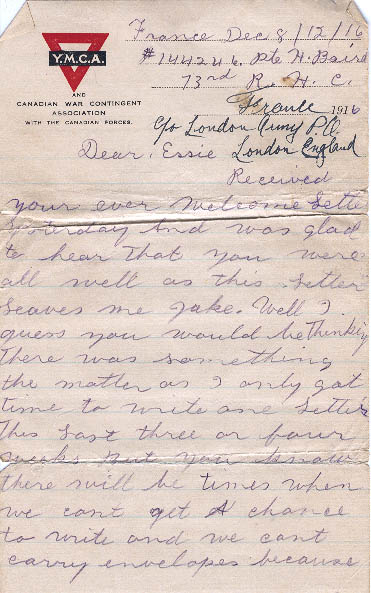 France Dec 8/12/16
Y.M.C.A.
#144246. Pte H. Baird
73rd R. H. C.
AND
CANADIAN WAR CONTINGENT
ASSOCIATION
WITH THE CANADIAN FORCES.
France 1916
c/o London Army P.O.
Dear. Essie London England
Received
your ever Welcome Letter
yesterday And was glad
to hear that you were
all well as this Letter
Leaves me Jake. Well I
guess you would be Thinking
There was something
the matter as I only got
time to write one Letter
This Last three or four
weeks But you know
there will be times when
we cant get A chance
to write and we cant
carry envelopes because